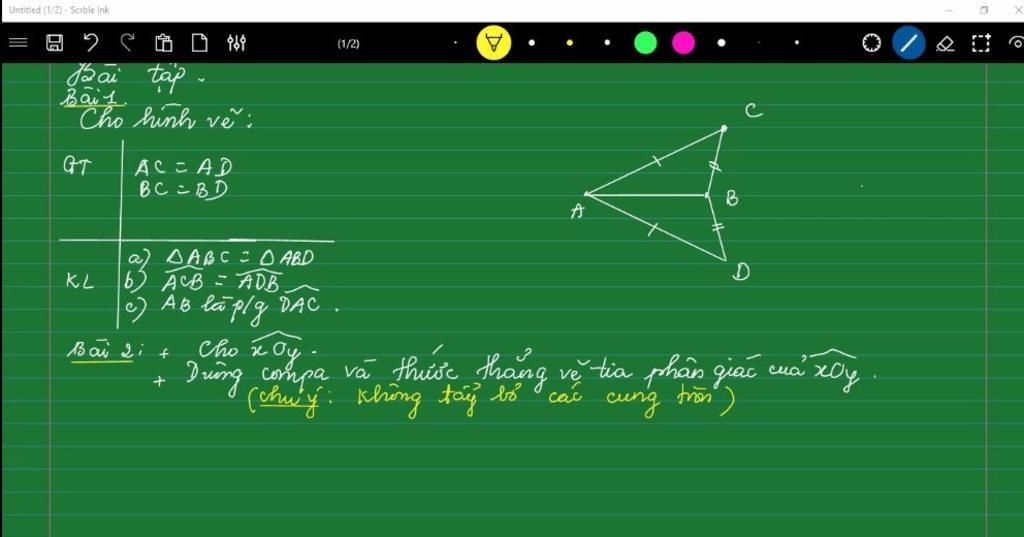 Untitled (1/2) - Scrble Ink
(1/2)
Bài tập.
Bài 1.
Cho hình vẽ:
GT AC = AD
BC = BD
KL a) ΔABC = ΔABD
b) ACB = ADB
c) AB là p/g DAC.
C
A
B
D
Bài 2: + Cho xOy.
+ Dùng compa và thước thẳng vẽ tia phân giác của xOy.
(chú ý: Không tẩy bỏ các cung tròn)